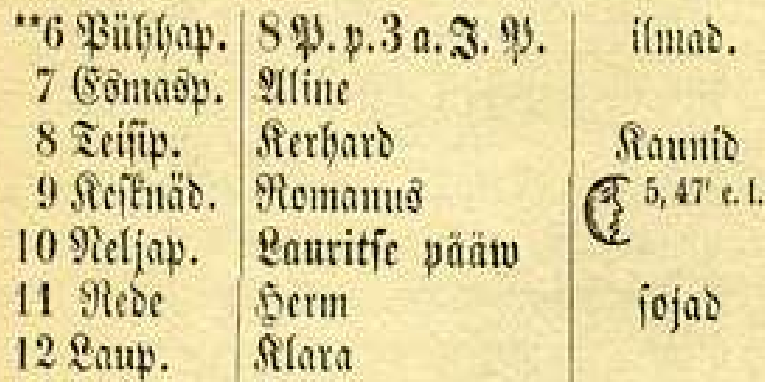 **6 Pühhap. 8 P. p. 3 a. J. P. ilmad.
7 Esmasp. Aline
8 Teisip. Kerhard Kaunid
9 Keſknäd. Romanus 5, 47' e. l.
10 Neljap. Lauritſe pääw
11 Rede Herm ſojad
12 Laup. Klara